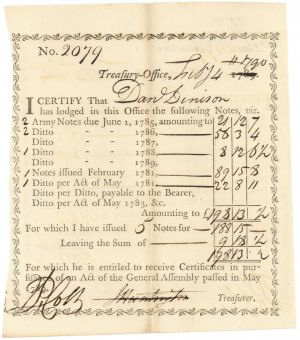 No. 2079
Treasury-Office, Feby 4 1790
I CERTIFY That Danl Denison
has lodged in this Office the following Notes, viz.
2 Army Notes due June 1, 1785, amounting to 21 12 7
2 Ditto - 1786, 58 3 4
Ditto - 1787,
1 Ditto - 1788, 8 12 6½
Ditto - 1789,
1 Notes issued February 1781, 89 15 8
1 Ditto per Act of May 1781, 22 8 11
Ditto per Ditto, payable to the Bearer,
Ditto per Act of May 1783, &c.
Amounting to £198 13 ½
For which I have issued 5 Notes for 188 15
Leaving the Sum of 9 18 ½
198 13 ½
For which he is entitled to receive Certificates in pur-
of an Act of the General Assembly passed in May
Treasurer.